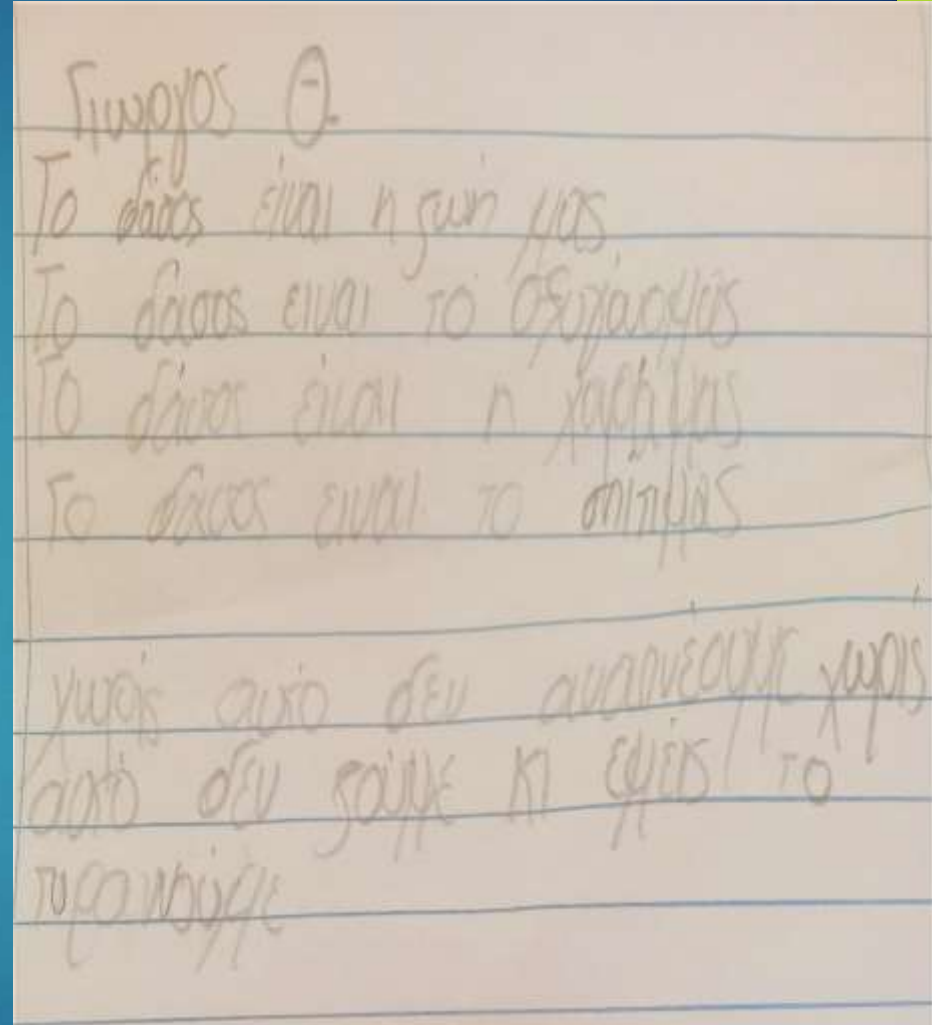 Γιωργος Θ.
Το δάσος είναι η ζωή μας
Το δάσος ειναι το οξυγόνομας
Το δάσος είναι η χαρήμας
Το δάσος ειναι το σπίτιμας
χωρίς αυτό δεν αναπνέουμε χωρις
αυτό δεν ζούμε κι εμείς το